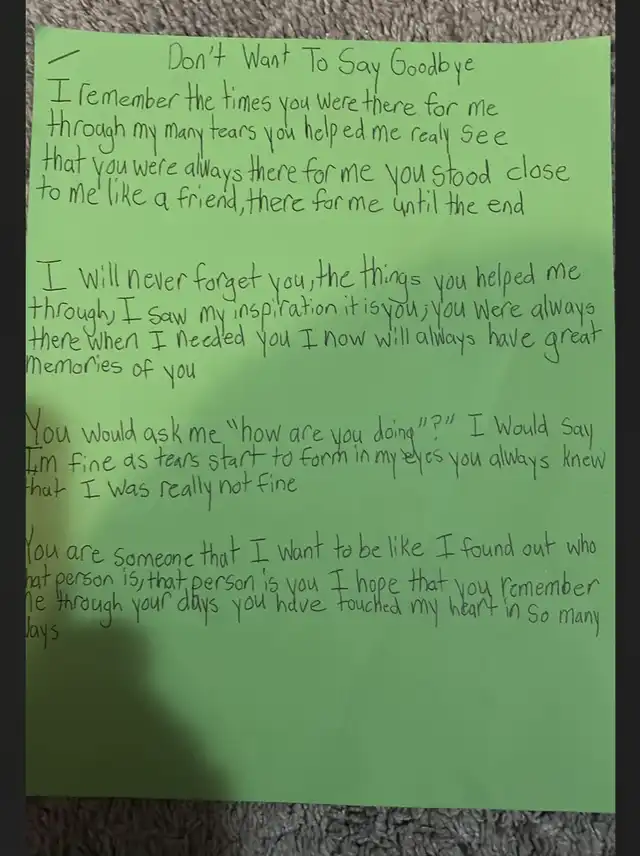 Don't Want To Say Goodbye
I remember the times you were there for me
through my many tears you helped me realy see
that you were always there for me you stood close
to me like a friend, there for me until the end
I will never forget you, the things you helped me
through, I saw my inspiration it is you, you were always
there when I needed you I now will always have great
memories of you
You would ask me "how are you doing"?" I would say
I,m fine as tears start to form in my eyes you always knew
that I was really not fine
You are someone that I want to be like I found out who
hat person is, that person is you I hope that you remember
me through your days you have touched my heart in so many
ways